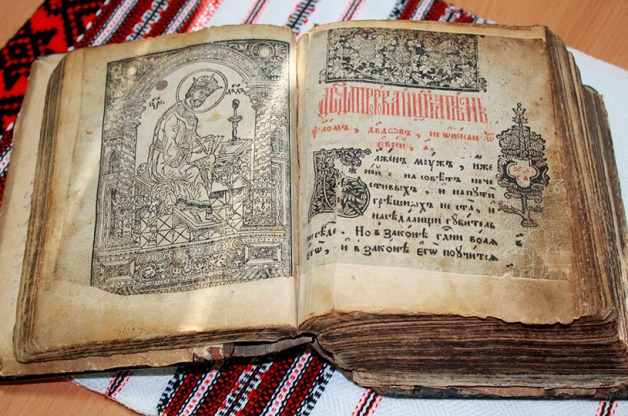 дв҃да прⷪ҇рка и цр҃ѧ пѣснь
ѱаломъ, дв҃довъ, не ѡписан ѿ
еврей, а҃.
Блженъ моужъ, иже
не иде на совѣтъ нече
стивыхъ, и на пути
грѣшныхъ не ста, и
на сѣдалищи губитель
не сѣде. Но в законѣ гдⷭ҇ни волѧ
его, и в законѣ егѡ поучитсѧ